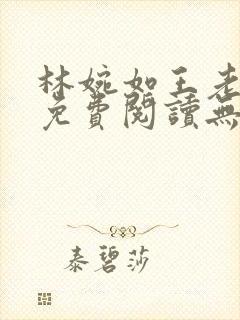 林婉如王老
免費閱讀無
泰碧莎